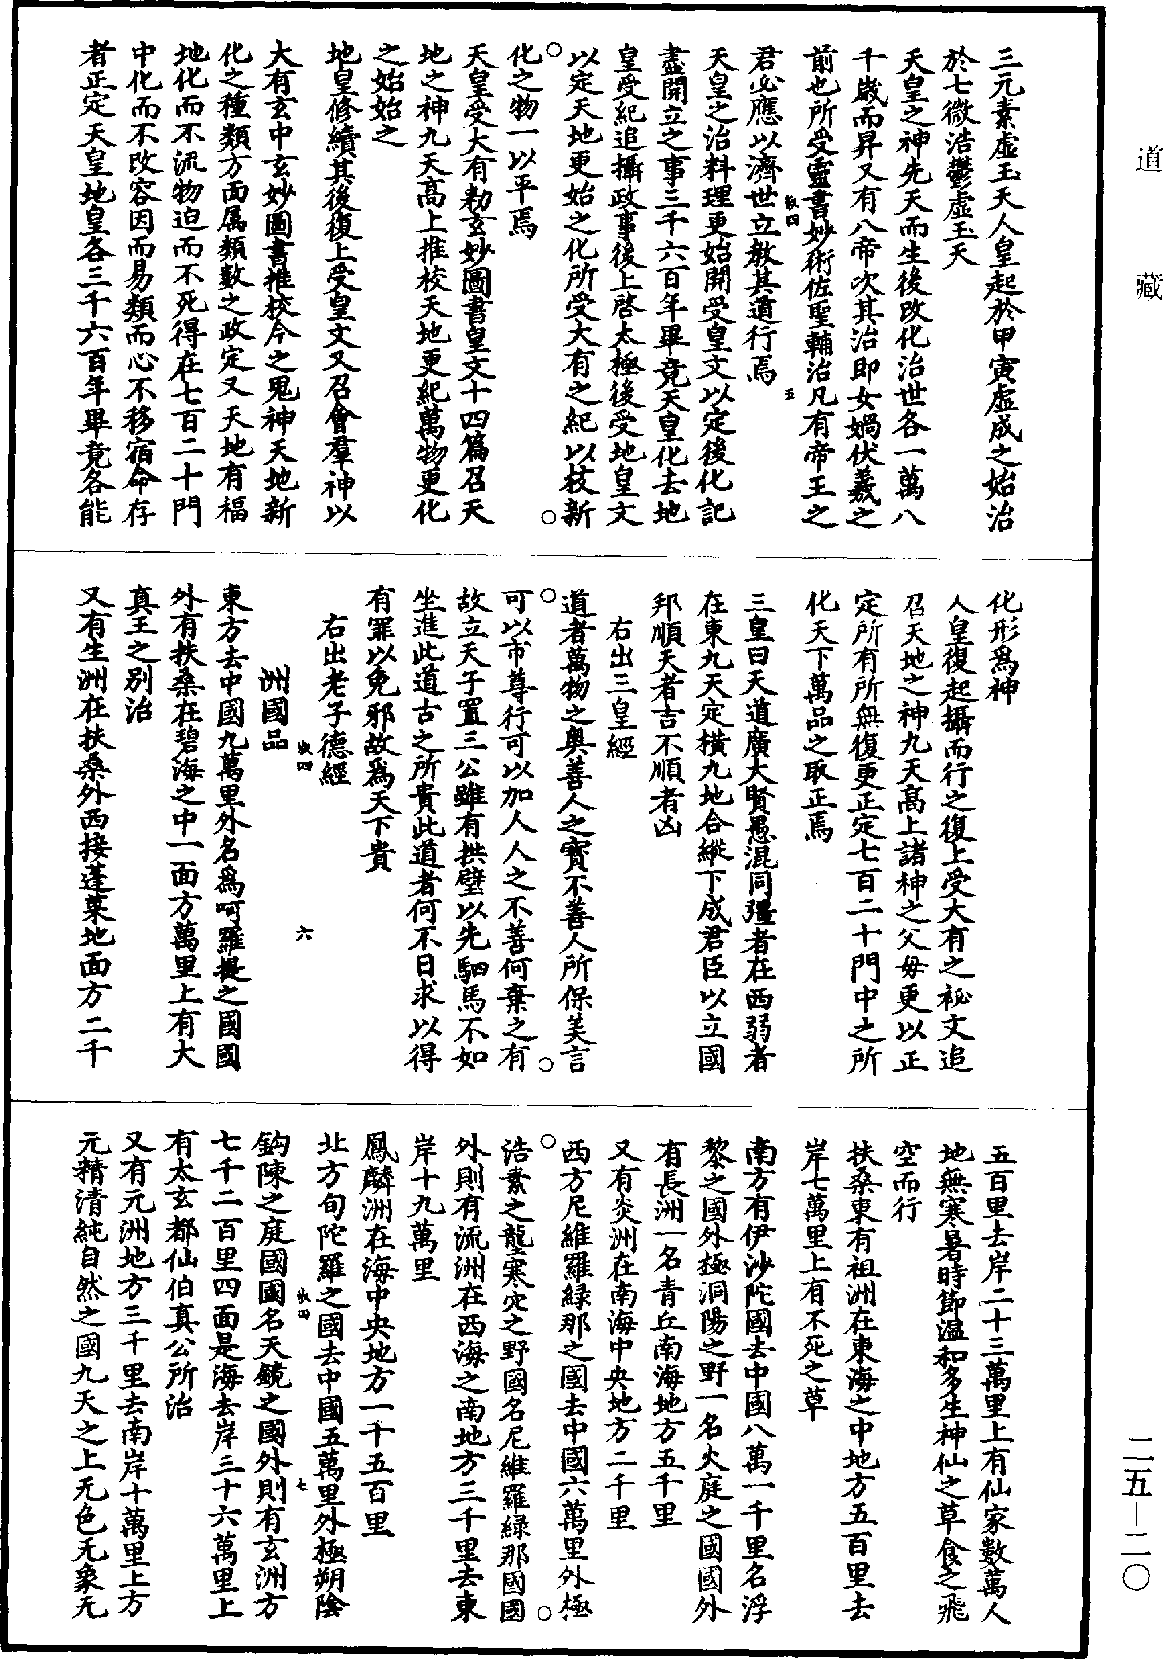 道藏
三元素虛玉天人皇起於甲寅虛成之始治
於七微浩鬱虛玉天
天皇之神先天而生後改化治世各一萬八
千歲而昇又有八帝次其治即女媧伏羲之
前也所受靈書妙術佐聖輔治凡有帝王之
敕四
五
君必應以濟世立教其道行焉
天皇之治料理更始開受皇文以定後化記
盡開立之事三千六百年畢竟天皇化去地
皇受紀追攝政事後上啓太極後受地皇文
以定天地更始之化所受大有之紀以校新
化之物一以平焉
天皇受大有勑玄妙圖書皇文十四篇召天
地之神九天高上推校天地更紀萬物更化
之始始之
地皇修續其後復上受皇文又召會羣神以
大有玄中玄妙圖書推校今之鬼神天地新
化之種類方面属類數之政定又天地有福
地化而不流物迫而不死得在七百二十門
中化而不改容因而易類而心不移宿命存
者正定天皇地皇各三千六百年畢竟各能
化形爲神
人皇復起攝而行之復上受大有之祕文追
召天地之神九天高上諸神之父母更以正
定所有所無復更正定七百二十門中之所
化天下萬品之取正焉
三皇曰天道廣大賢愚混同彊者在西弱者
在東九天定橫九地合縱下成君臣以立國
邦順天者吉不順者凶
右出三皇經
道者萬物之奥善人之寶不善人所保美言
可以市尊行可以加人人之不善何棄之有
故立天子置三公雖有拱璧以先駟馬不如
坐進此道古之所貴此道者何不日求以得
有罪以免邪故爲天下貴
右出老子德經
敕四
六
洲國品
東方去中國九萬里外名爲呵羅提之國國
外有扶桑在碧海之中一面方萬里上有大
真王之别治
又有生洲在扶桑外西接蓬萊地面方二千
五百里去岸二十三萬里上有仙家數萬人
地無寒暑時節温和多生神仙之草食之飛
空而行
扶桑東有祖洲在東海之中地方五百里去
岸七萬里上有不死之草
南方有伊沙陀國去中國八萬一千里名浮
黎之國外極洞陽之野一名火庭之國國外
有長洲一名青丘南海地方五千里
又有炎洲在南海中央地方二千里
西方尼維羅綠那之國去中國六萬里外極
浩素之壟寒穴之野國名尼維羅綠那國國
外則有流洲在西海之南地方三千里去東
岸十九萬里
鳳麟洲在海中央地方一千五百里
北方旬陀羅之國去中國五萬里外極朔陰
敕四
七
鈎陳之庭國國名天鏡之國外則有玄洲方
七千二百里四面是海去岸三十六萬里上
有太玄都仙伯真公所治
又有元洲地方三千里去南岸十萬里上方
元精清純自然之國九天之上无色无象无
二五—二〇